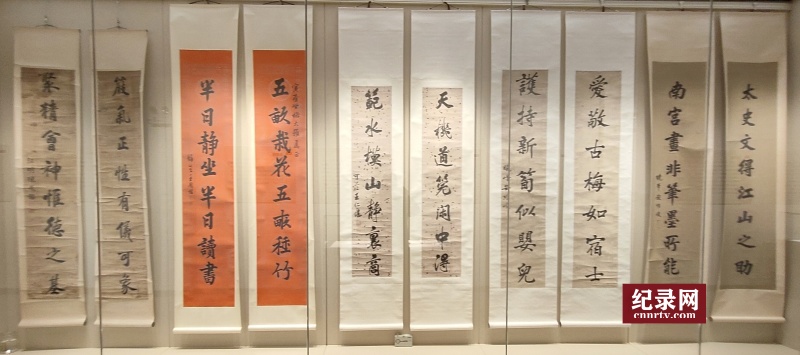 太史文得江山之助
南宮畫非筆墨所能
愛敬古梅如宿士
護持新筍似嬰兒
天機道筦閑中得
範水模山靜裏商
五畝栽花五畝種竹
半日靜坐半日讀書
嚴氣正性有儀可象
聚精會神惟德之基
纪录网
cnnrtv.com